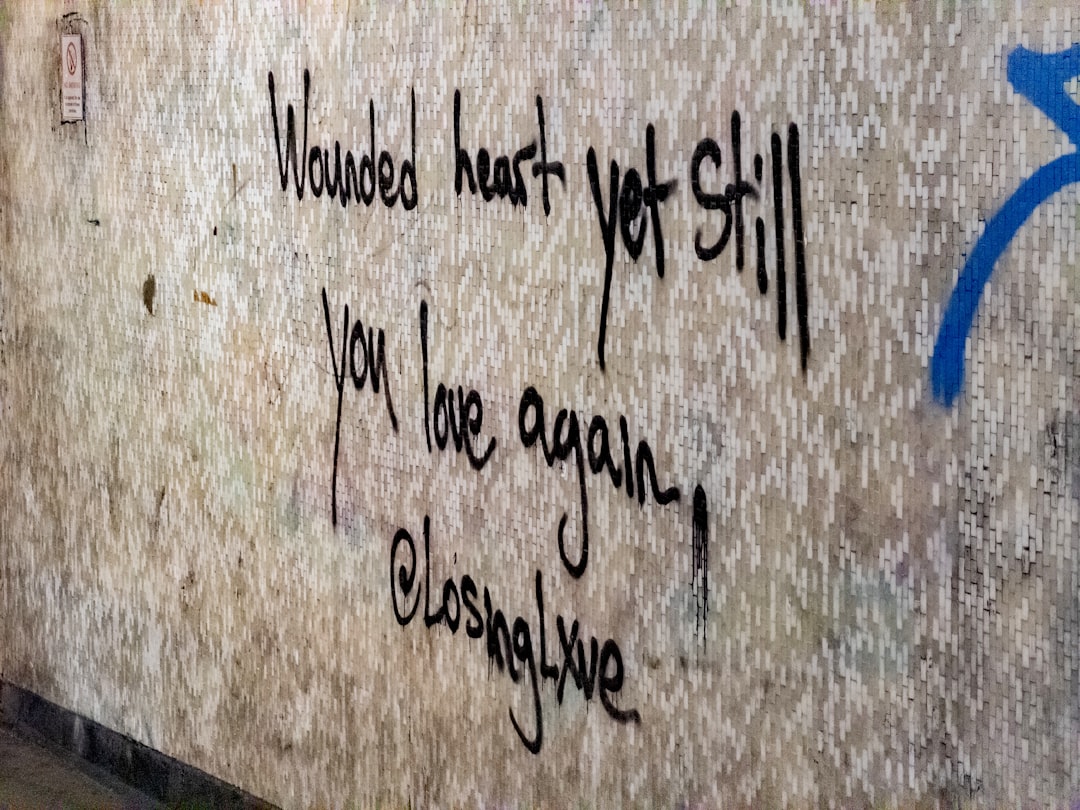 Wounded heart yet Still
you love again,
@LosingLxve